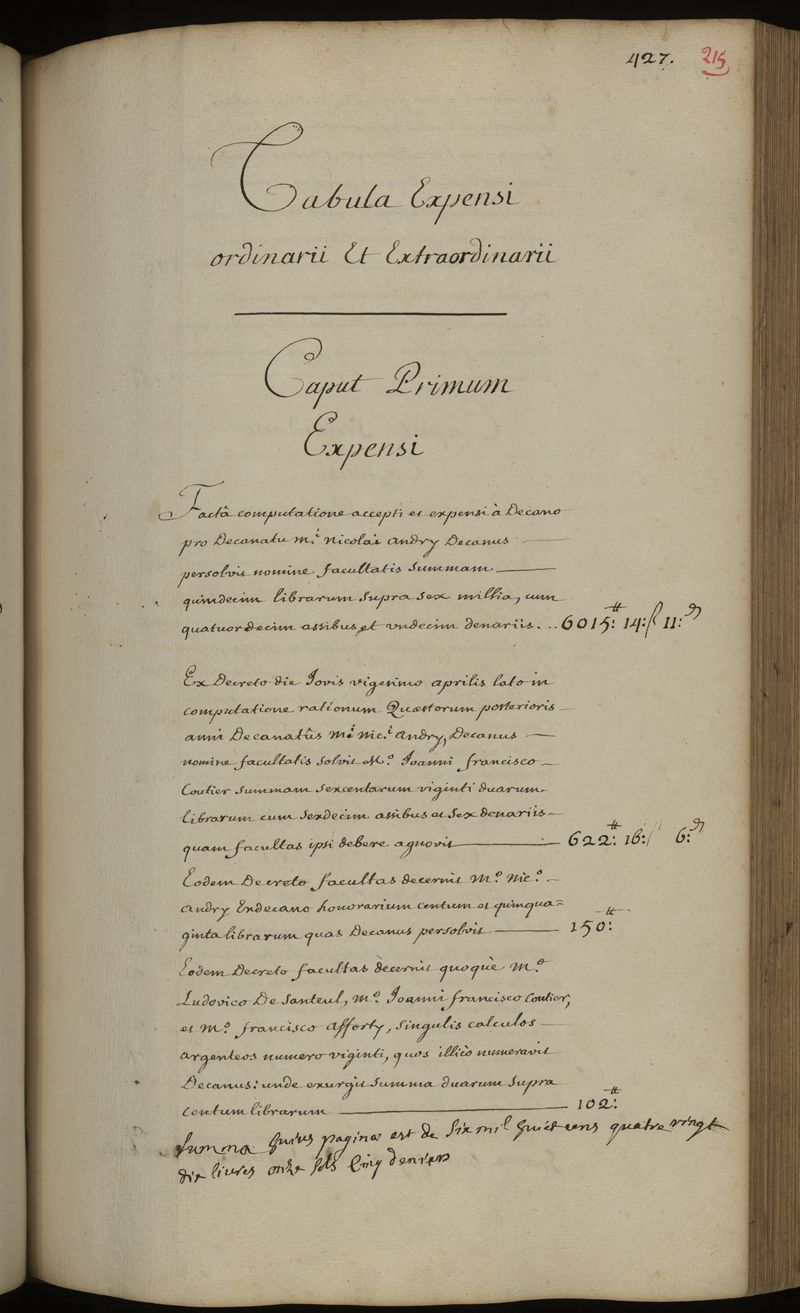 427. 215
Tabula Expensi
ordinarii Et Extraordinarii
Caput Primum
Expensi
Factâ computatione accepti et expensi à Decano
pro Decanatu M.i Nicolai Andry Decanus
persolvit nomine facultatis Summam
quindecim librarum supra sex millia, cum
quatuordecim assibus et undecim denariis... 6015.tt 14:ſ 11:d
Ex Decreto die Jovis vigesimo aprilis lato in
computatione rationum Quæstorum posterioris
anni Decanatûs M.i Nic.i Andry, Decanus
nomine facultatis solvit M.o Joanni francisco
Coutier summam sexcentarum viginti duarum
librarum cum Sexdecim assibus et Sex denariis
quam facultas ipsi debere agnovit 622.tt 16:ſ 6:d
Eodem Decreto facultas decernit M.o Nic.o
Andry Exdecano honorarium centum et quinqua=
ginta librarum quas Decanus persolvit 150:tt
Eodem Decreto facultas decernit quoquè M.o
Ludovico De Santeul, M.o Joanni francisco Coutier,
et M.o francisco Afforty, singulis calculos
argenteos numero viginti, quos illicò numeravit
Decanus: unde exurgit Summa duarum supra
centum librarum 102:tt
Summa huius paginæ est de six mil huict cens quatre vingt
dix livres onze sols cinq deniers